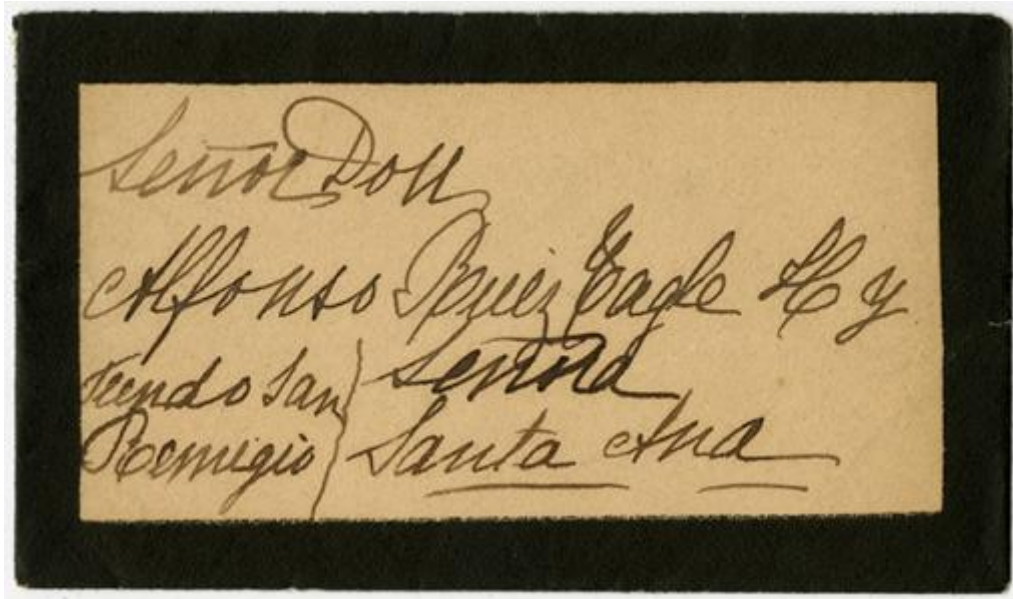 Señor Don
Alfonso Ruiz Eagle H y
Señora
Fundo San
Remigio
Santa Ana